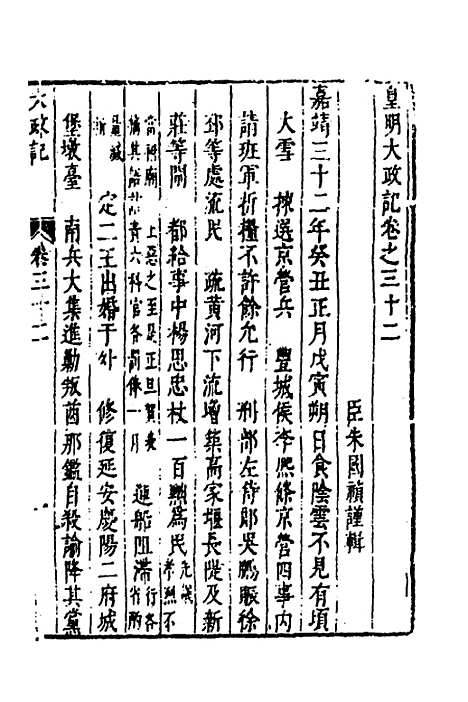 皇明大政記卷之三十二
臣朱國禎謹輯
嘉靖三十二年癸丑正月戊寅朔日食陰雲不見有頃
大雪　揀選京營兵　豐城侯李熙條京營四事內
請班軍折糧不許餘允行　刑部左侍郎吳鵬賑徐
邳等處流民　疏黃河下流增築高家堰長陡及新
莊等閘　都給事中楊思忠杖一百黜為民
上惡之至是正旦賀表
摘其語 責六科官各罰俸一月　運船阻滯
定二王出婚于外　修復延安慶陽二府城
堡墩臺　南兵大集進勦叛酋那鑑自殺諭降其黨
大政記　卷三十二　一